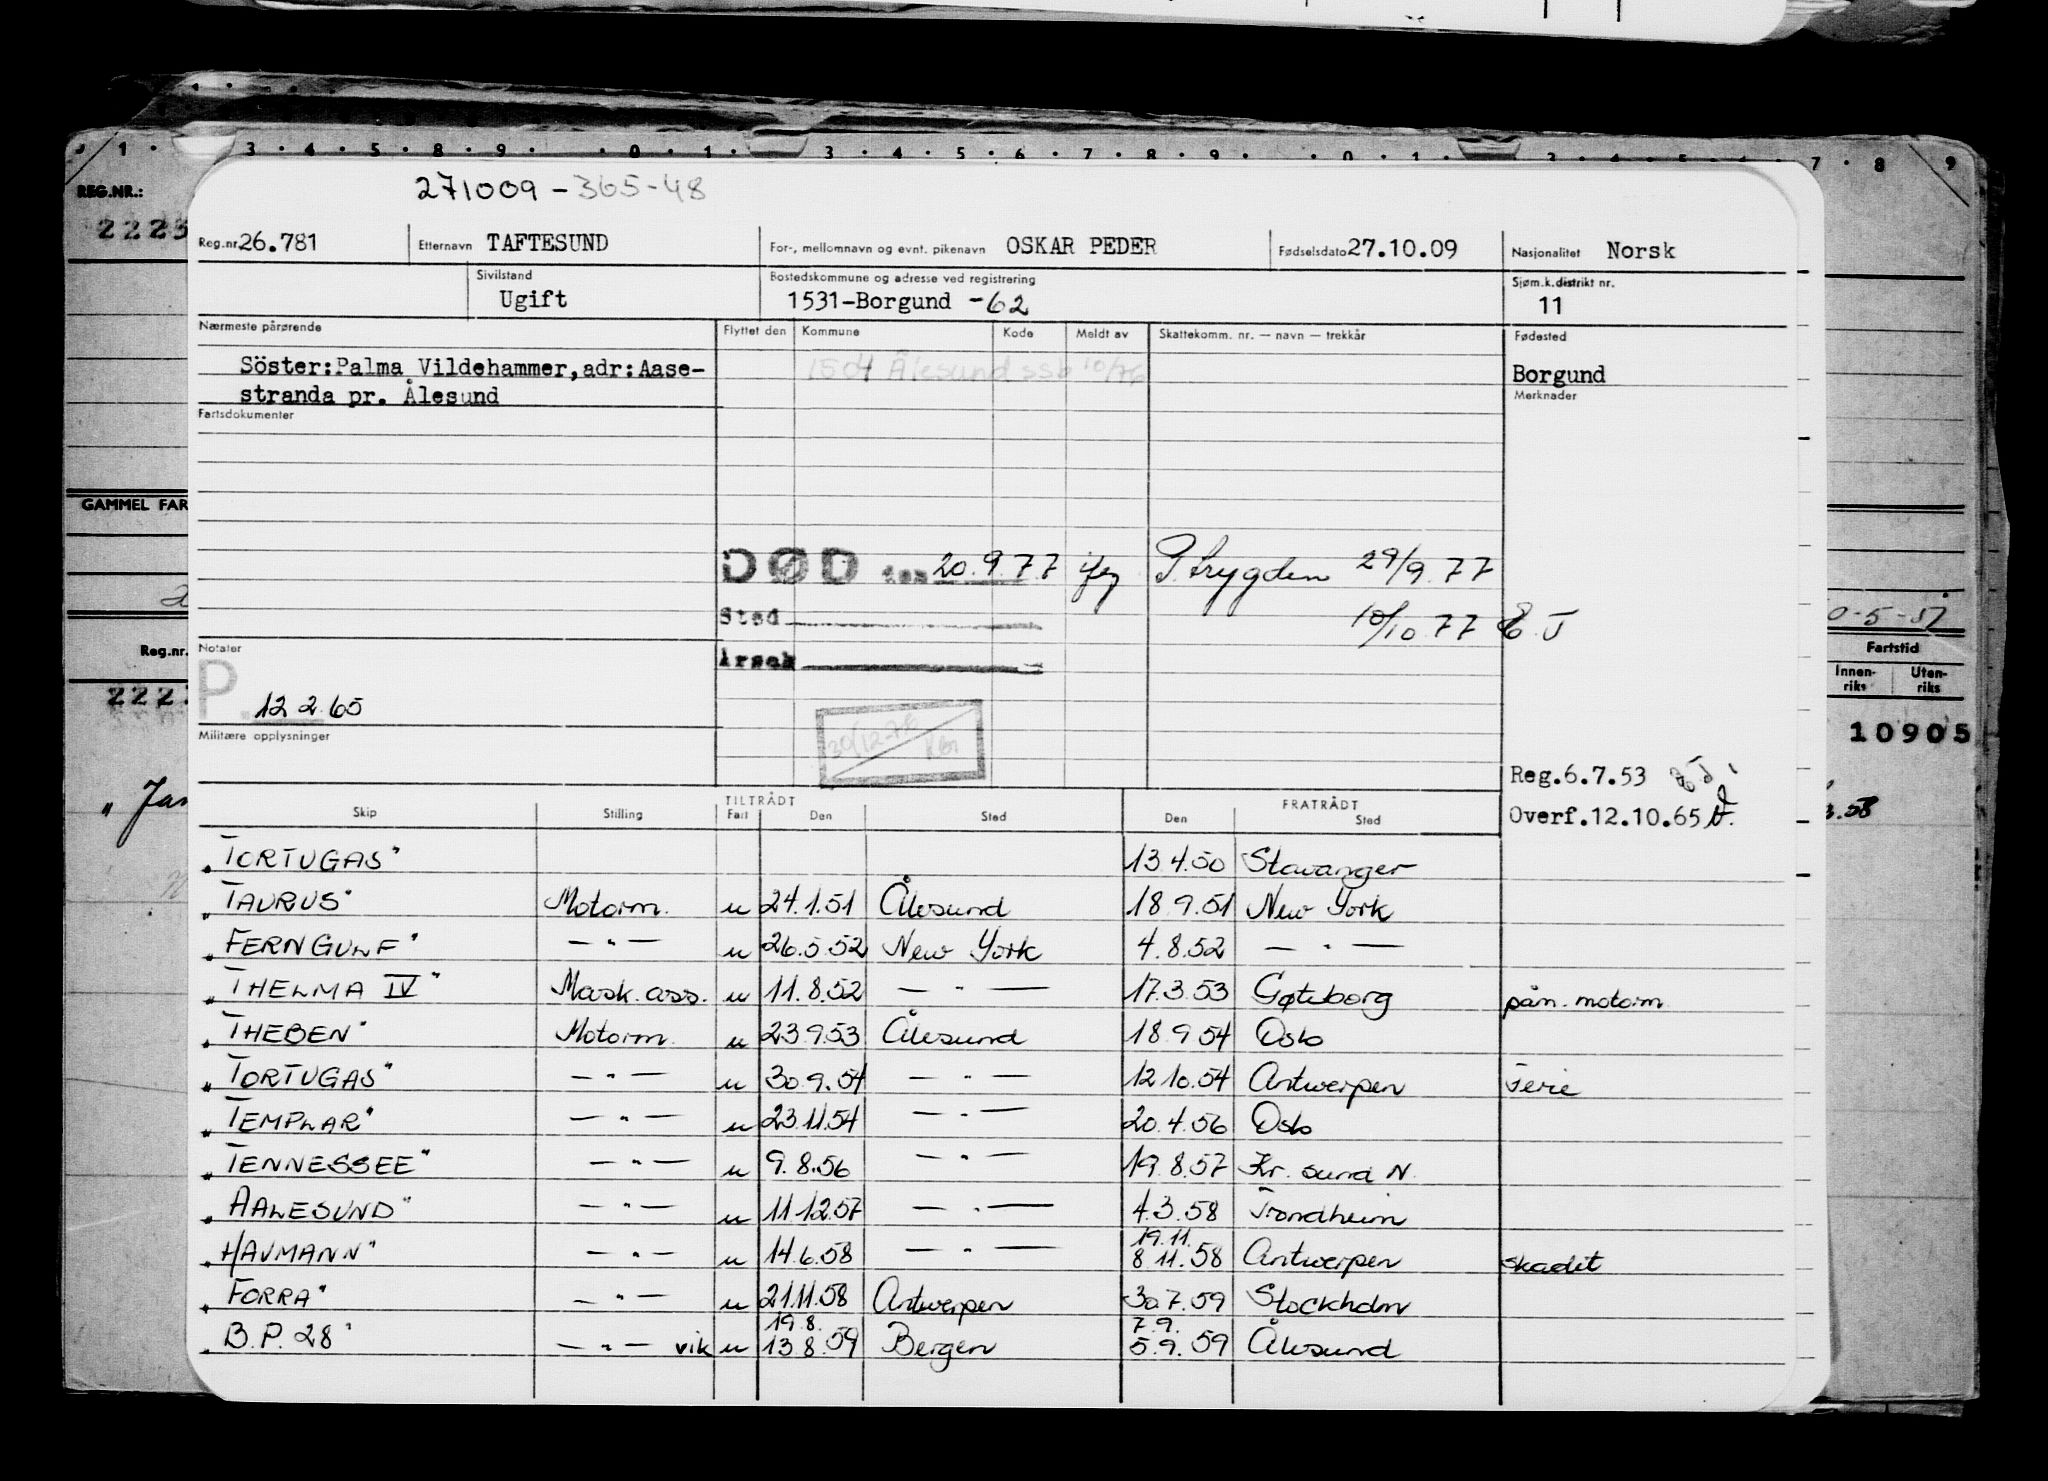 1 · 3 · 4 · 5 · 8 · 9 · · 0 · 1 · 3 · 4 · 5 · 6 · 7 · 8 · 9 · · 0 · 1 · 7 · 8 9
REG.NR.:
2223
271009-365-48
Reg.nr. 26.781 Etternavn TAFTESUND For-, mellomnavn og evnt. pikenavn OSKAR PEDER Fødselsdato 27.10.09 Nasjonalitet Norsk
Sivilstand Ugift Bostedskommune og adresse ved registrering 1531-Borgund -62 Sjøm.k.distrikt nr. 11
Nærmeste pårørende Flyttet den Kommune Kode Meldt av Skattekomm. nr. — navn — trekkår Fødested
Söster:Palma Vildehammer,adr:Aase- 1504 Ålesund ssb 10/76 Borgund
stranda pr. Ålesund Merknader
Fartsdokumenter
GAMMEL FAR
DØD den 20.9.77 P.trygden 29/9.77
Sted 10/10.77 E.J
Årsak
0-5-57
Reg.nr. Notater Fartstid
Innen-riks Uten-riks
222
P. 12 2.65
Militære opplysninger 30/12-76
10905
Reg.6.7.53
Overf.12.10.65
TILTRÅDT FRATRÅDT
Skip Stilling Fart Den Sted Den Sted
„Jan 3.58
„TORTUGAS" 13.4.50 Stavanger
„TAURUS" Motorm. u 24.1.51 Ålesund 18.9.51 New York
„FERNGULF" — " — u 26.5.52 New York 4.8.52 — " —
„THELMA IV" Mask.ass. u 11.8.52 — " — 17.3.53 Gøteborg pån. motorm.
„THEBEN" Motorm. u 23.9.53 Ålesund 18.9.54 Oslo
„TORTUGAS" — " — u 30.9.54 — " — 12.10.54 Antwerpen Ferie
„TEMPLAR" — " — u 23.11.54 — " — 20.4.56 Oslo
„TENNESSEE" — " — u 9.8.56 — " — 19.8.57 Kr. sund N.
„AALESUND" — " — u 11.12.57 — " — 4.3.58 Trondheim
19.11.
„HAVMANN" — " — u 14.6.58 — " — 8.11.58 Antwerpen skadet
„FORRA" — " — u 21.11.58 Antwerpen 30.7.59 Stockholm
19.8. 7.9.
„B.P. 28" — " — vik u 13.8.59 Bergen 5.9.59 Ålesund